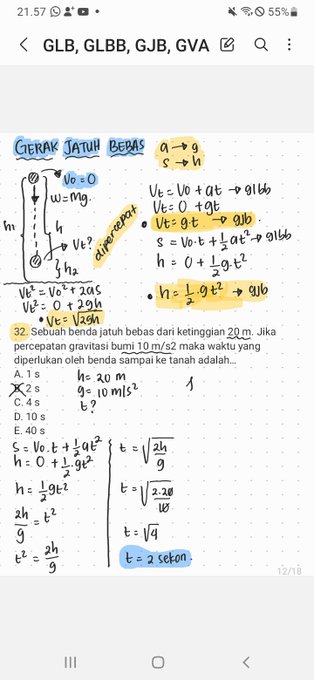 21.57
55%
GLB, GLBB, GJB, GVA
GERAK JATUH BEBAS
a → g
s → h
Vo=0
W=mg.
h1
h
Vt?
h2
dipercepat
Vt² = Vo² + 2as
Vt² = 0 + 2gh
• Vt = √2gh
Vt = Vo + at → glbb
Vt = 0 + gt
• Vt = g.t → gjb.
s = Vo.t + ½ at² → glbb
h = 0 + ½ g.t²
• h = ½ . gt² → gjb
32. Sebuah benda jatuh bebas dari ketinggian 20 m. Jika
percepatan gravitasi bumi 10 m/s2 maka waktu yang
diperlukan oleh benda sampai ke tanah adalah...
A. 1 s
B. 2 s
C. 4 s
D. 10 s
E. 40 s
h = 20 m
g = 10 m/s²
t?
s = Vo.t + ½ at²
h = 0 + ½ . gt²
h = ½ gt²
2h/g = t²
t² = 2h/g
t = √2h/g
t = √2.20/10
t = √4
t = 2 sekon.
12/18